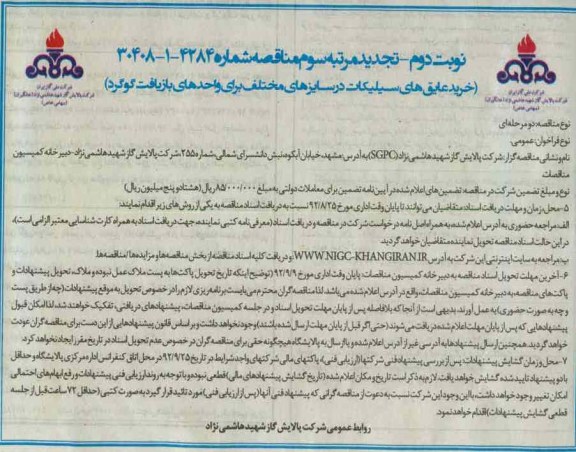 نوبت دوم - تجدید مرتبه سوم مناقصه شماره ۴۲۸۴-۱-۳۰۴۰۸
(خرید عایق های سیلیکات در سایزهای مختلف برای واحدهای بازیافت گوگرد)
شرکت ملی گاز ایران
شرکت پالایش گاز شهید هاشمی نژاد (خانگیران)
(سهامی خاص)
شرکت ملی گاز ایران
شرکت پالایش گاز شهید هاشمی نژاد (خانگیران)
(سهامی خاص)
نوع مناقصه: دو مرحله ای
نوع فراخوان: عمومی
نام و نشانی مناقصه گزار: شرکت پالایش گاز شهید هاشمی نژاد (SGPC) به آدرس: مشهد، خیابان آبکوه، نبش دانشسرای شمالی، شماره ۲۵۵، شرکت پالایش گاز شهید هاشمی نژاد - دبیرخانه کمیسیون
مناقصات
نوع و مبلغ تضمین شرکت در مناقصه: تضمین های اعلام شده در آیین نامه تضمین برای معاملات دولتی به مبلغ ۸۵/۰۰۰/۰۰۰ ریال (هشتاد و پنج میلیون ریال)
۵- محل، زمان و مهلت دریافت اسناد: متقاضیان می توانند تا پایان وقت اداری مورخ ۹۲/۸/۲۵ نسبت به دریافت اسناد مناقصه به یکی از روش های زیر اقدام نمایند:
الف: مراجعه حضوری به آدرس اعلام شده، به همراه اصل نامه درخواست شرکت در مناقصه و دریافت اسناد (معرفی نامه کتبی نماینده، جهت دریافت اسناد به همراه کارت شناسایی معتبر الزامی است)،
در این حالت اسناد مناقصه تحویل نماینده متقاضیان خواهد گردید
ب: مراجعه به سایت اینترنتی این شرکت به آدرس WWW.NIGC-KHANGIRAN.IR و دریافت کلیه اسناد مناقصه از بخش مناقصه ها و مزایده ها/مناقصه ها.
۶- آخرین مهلت تحویل اسناد مناقصه به دبیرخانه کمیسیون مناقصات: پایان وقت اداری مورخ ۹۲/۹/۹ (توضیح اینکه تاریخ تحویل پاکت ها به پست ملاک عمل نبوده و ملاک، تحویل پیشنهادات و
پاکت های مناقصه، به دبیرخانه کمیسیون مناقصات، واقع در آدرس اعلام شده می باشد. لذا مناقصه گران محترم می بایست برنامه ریزی لازم را در خصوص تحویل به موقع پیشنهادات (چه از طریق پست
و چه به صورت حضوری) به عمل آورند. بدیهی است از آنجا که بلافاصله پس از پایان مهلت تحویل اسناد و در جلسه کمیسیون مناقصات، پیشنهادهای دریافتی، تفکیک خواهند شد، لذا امکان قبول
پیشنهادهایی که پس از پایان مهلت اعلام شده دریافت می شوند (حتی اگر قبل از پایان مهلت ارسال شده باشند) وجود نخواهد داشت و بر اساس قانون پیشنهادهایی از این دست برای مناقصه گران عودت
خواهد گردید. همچنین ارسال پیشنهادها به آدرسی غیر از آدرس اعلام شده و یا ارسال به پالایشگاه هیچگونه حقی برای مناقصه گران در خصوص عدم تحویل اسناد در تاریخ مقرر ایجاد نخواهد کرد.
۷- محل و زمان گشایش پیشنهادات: پس از بررسی پیشنهاد فنی شرکتها (ارزیابی فنی)، پاکتهای مالی شرکتهای واجد شرایط در تاریخ ۹۲/۹/۲۵ در محل اتاق کنفرانس اداره مرکزی پالایشگاه و حداقل
با دو پیشنهاد تایید شده گشایش خواهد یافت. لازم به ذکر است تاریخ و مکان اعلام شده (تاریخ گشایش پیشنهادهای مالی) قطعی نبوده و با توجه به روند ارزیابی فنی پیشنهادات و رفع ابهام های احتمالی
امکان تغییر وجود خواهد داشت، با این وجود این شرکت نسبت به دعوت از مناقصه گرانی که پیشنهاد فنی آنها (پس از ارزیابی فنی) مورد تائید قرار گیرد به صورت کتبی (حداقل ۷۲ ساعت قبل از جلسه
قطعی گشایش پیشنهادات) اقدام خواهد نمود.
روابط عمومی شرکت پالایش گاز شهید هاشمی نژاد